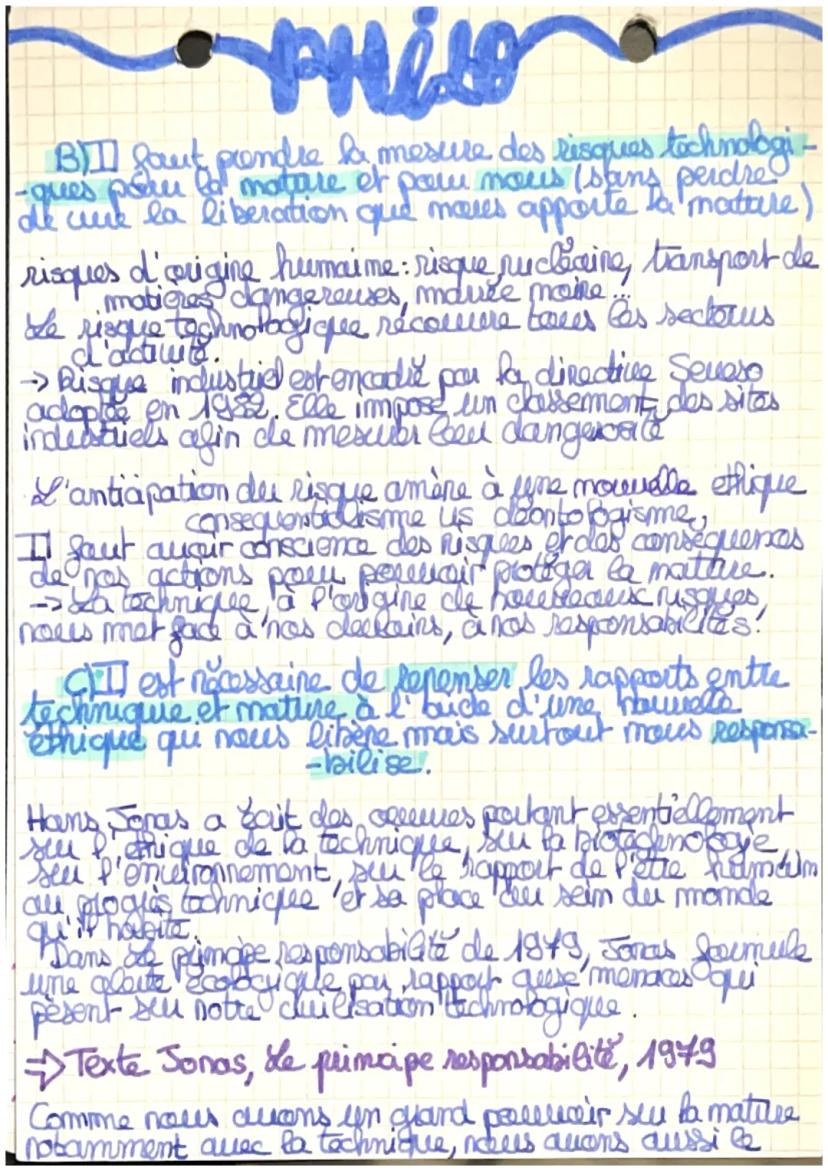 PHilo
B) Il faut prendre la mesure des risques technologi-
-ques pour la nature et pour nous (sans perdre
de vue la libération que nous apporte la nature)
risques d'origine humaine : risque nucléaire, transport de
matières dangereuses, marée noire...
Le risque technologique recouvre tous les secteurs
d'activité.
→ Risque industriel est encadré par la directive Seveso
adoptée en 1982. Elle impose un classement des sites
industriels afin de mesurer leur dangerosité
L'anticipation du risque amène à une nouvelle ethique
consequentialisme vs déontologisme,
Il faut avoir conscience des risques et des conséquences
de nos actions pour pouvoir protéger la nature.
→ La technique, à l'origine de nouveaux risques,
nous met face à nos devoirs, à nos responsabilités.
C) Il est nécessaire de repenser les rapports entre
technique et nature à l'aide d'une nouvelle
éthique qui nous libère mais surtout nous responsa-
-bilise.
Hans Jonas a écrit des oeuvres portant essentiellement
sur l'éthique de la technique, sur la biotechnologie,
sur l'environnement, sur le rapport de l'être humain
au progrès technique et sa place au sein du monde
qu'il habite.
Dans Le principe responsabilité de 1979, Jonas formule
une alerte écologique par rapport aux menaces qui
pèsent sur notre civilisation technologique.
⇒ Texte Jonas, Le principe responsabilité, 1979
Comme nous avons un grand pouvoir sur la nature
notamment avec la technique, nous avons aussi le